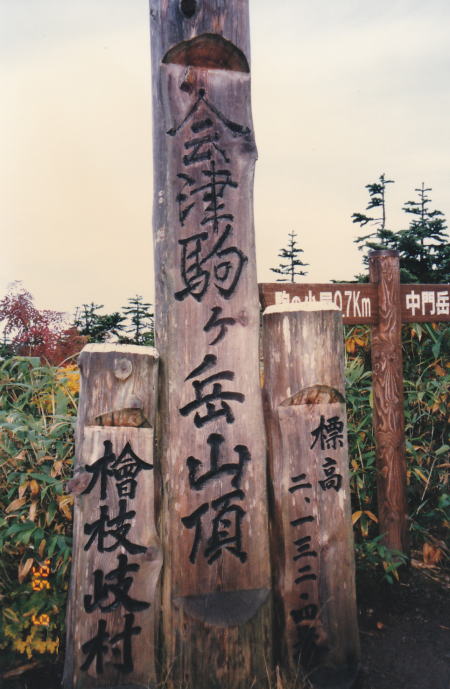 会津駒ヶ岳山頂
檜枝岐村
標高
二、一三二・四米
駒の小屋0.7Km
中門岳